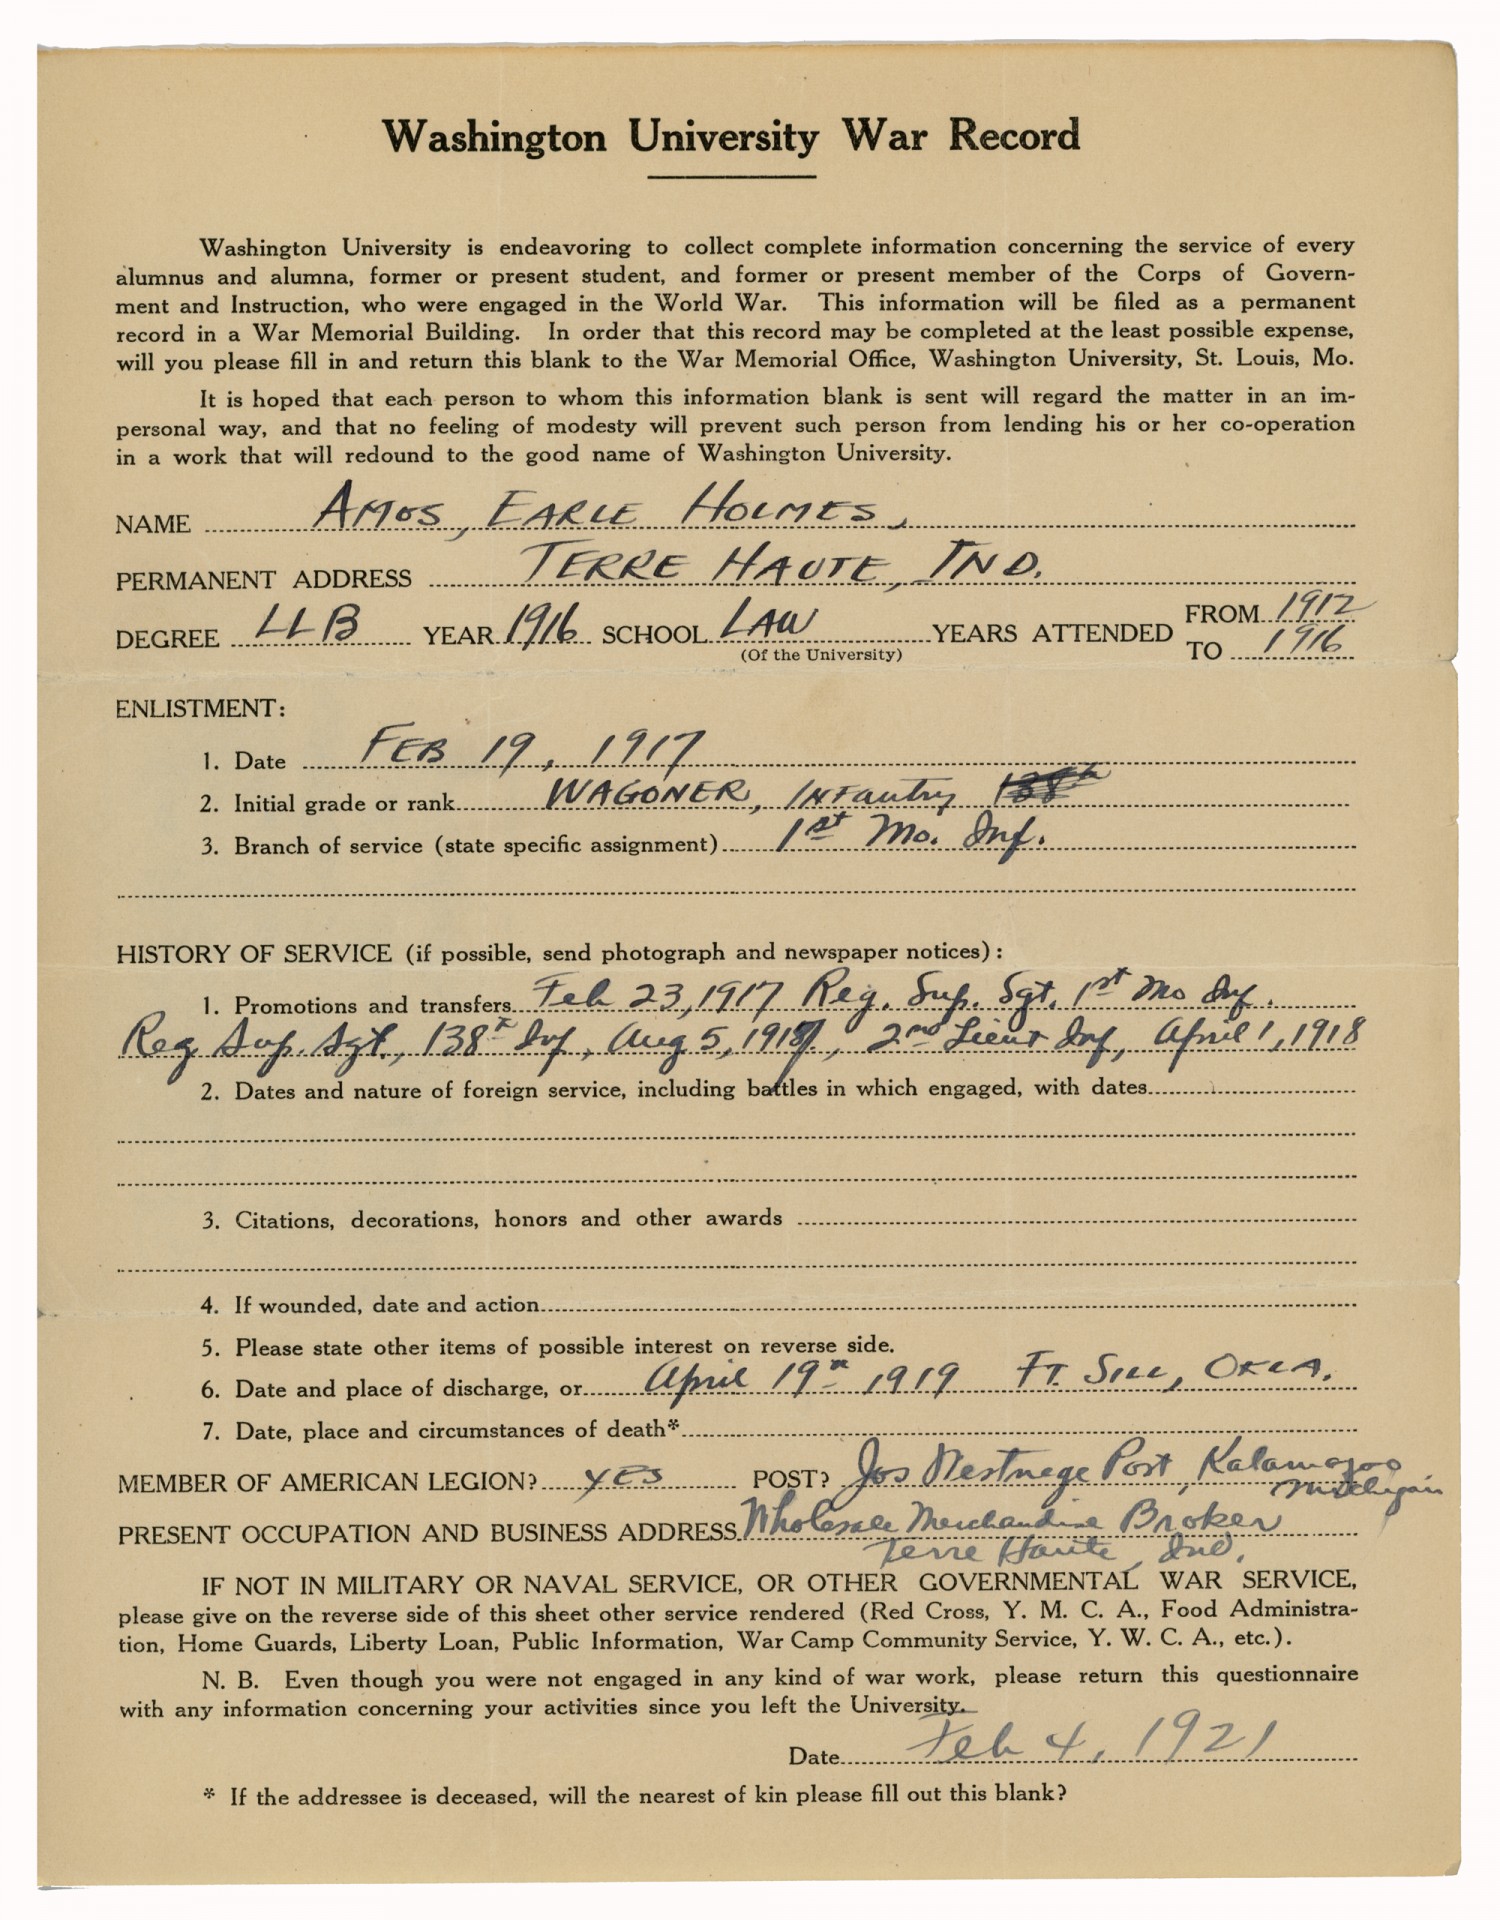 Washington University War Record
Washington University is endeavoring to collect complete information concerning the service of every
alumnus and alumna, former or present student, and former or present member of the Corps of Govern-
ment and Instruction, who were engaged in the World War. This information will be filed as a permanent
record in a War Memorial Building. In order that this record may be completed at the least possible expense,
will you please fill in and return this blank to the War Memorial Office, Washington University, St. Louis, Mo.
It is hoped that each person to whom this information blank is sent will regard the matter in an im-
personal way, and that no feeling of modesty will prevent such person from lending his or her co-operation
in a work that will redound to the good name of Washington University.
NAME AMOS, EARLE HOLMES,
PERMANENT ADDRESS TERRE HAUTE, IND.
DEGREE LLB YEAR 1916 SCHOOL LAW YEARS ATTENDED FROM 1912
(Of the University) TO 1916
ENLISTMENT:
1. Date FEB 19, 1917
2. Initial grade or rank WAGONER, Infantry 138th
3. Branch of service (state specific assignment) 1st Mo. Inf.
HISTORY OF SERVICE (if possible, send photograph and newspaper notices):
1. Promotions and transfers Feb 23, 1917 Reg. Sup. Sgt. 1st Mo Inf.
Reg. Sup. Sgt., 138th Inf, Aug 5, 1917, 2nd Lieut Inf, April 1, 1918
2. Dates and nature of foreign service, including battles in which engaged, with dates
3. Citations, decorations, honors and other awards
4. If wounded, date and action
5. Please state other items of possible interest on reverse side.
6. Date and place of discharge, or April 19th, 1919 FT. SILL, OKLA.
7. Date, place and circumstances of death*
MEMBER OF AMERICAN LEGION? YES POST? Jos Post, Kalamazoo
Michigan
PRESENT OCCUPATION AND BUSINESS ADDRESS Wholesale Merchandise Broker
Terre Haute, Ind.
IF NOT IN MILITARY OR NAVAL SERVICE, OR OTHER GOVERNMENTAL WAR SERVICE,
please give on the reverse side of this sheet other service rendered (Red Cross, Y. M. C. A., Food Administra-
tion, Home Guards, Liberty Loan, Public Information, War Camp Community Service, Y. W. C. A., etc.).
N. B. Even though you were not engaged in any kind of war work, please return this questionnaire
with any information concerning your activities since you left the University.
Date Feb 4, 1921
* If the addressee is deceased, will the nearest of kin please fill out this blank?